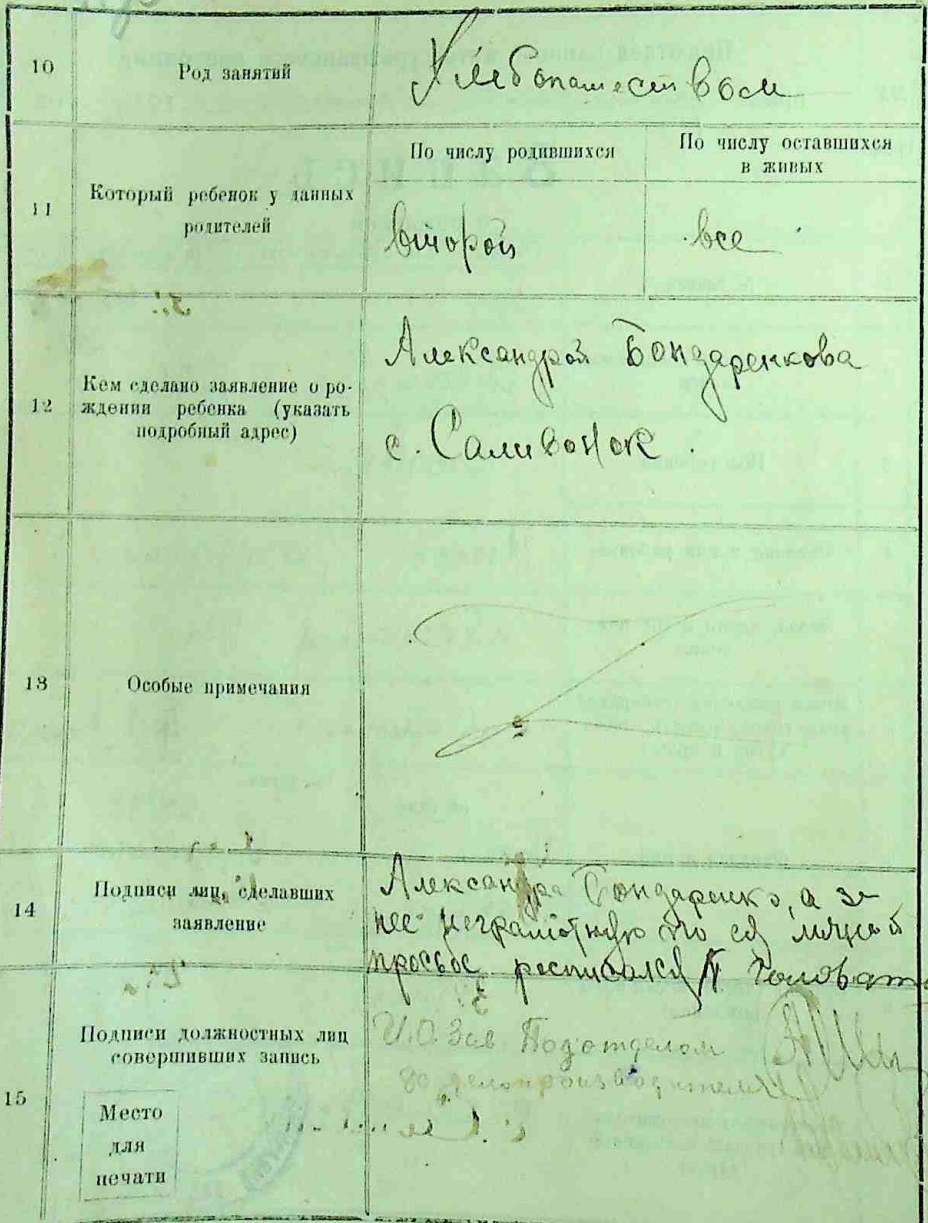 10 Род занятий Хлебопашеством
11 Который ребенок у данных
родителей
По числу родившихся По числу оставшихся
в живых
второй все
12 Кем сделано заявление о ро-
ждении ребенка (указать
подробный адрес)
Александрой Бондаренкова
с. Саливонок.
13 Особые примечания
14 Подписи лиц, сделавших
заявление
Александра Бондаренко, а за
нее неграмотную по ея личной
просьбе росписался
15 Подписи должностных лиц
совершивших запись
И.О. Зав Подотделом
делопроизводителя
Место
для
печати